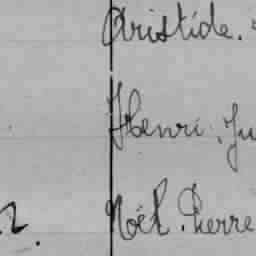 Aristide.
Henri. Ju
2. Noël. Pierre